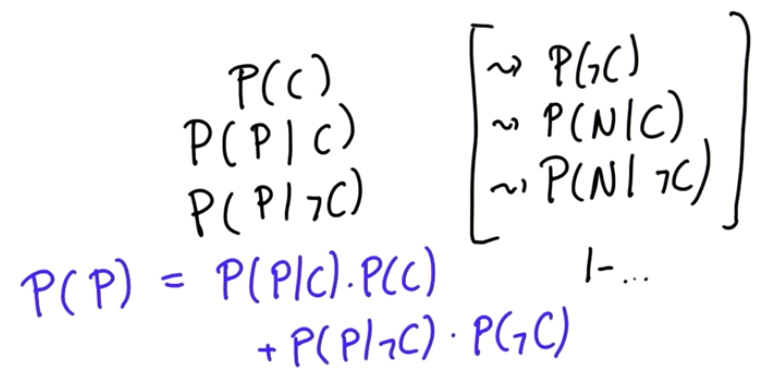 P(C) ⇝ P(¬C)
P(P|C) ⇝ P(N|C)
P(P|¬C) ⇝ P(N|¬C)
1-...
P(P) = P(P|C).P(C)
+ P(P|¬C) · P(¬C)